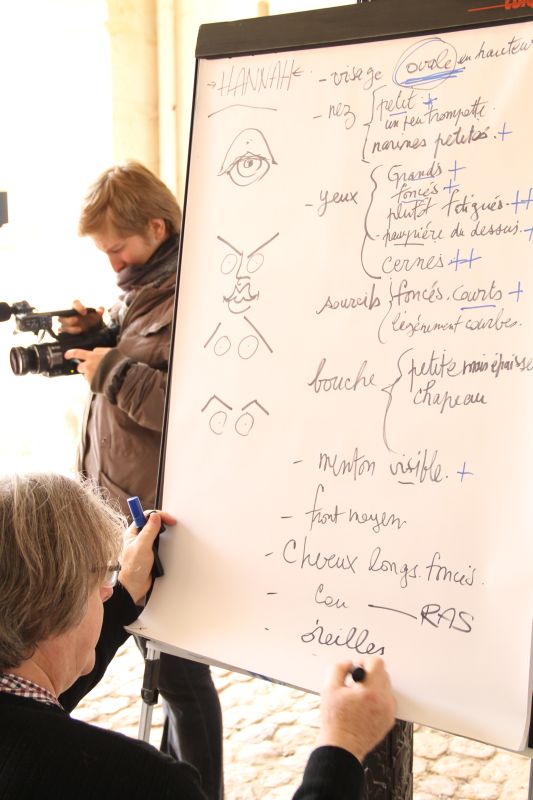 → HANNAH ←
- visage ovale en hauteur
- nez petit +
un peu trompette.
narines petites. +
- yeux Grands +
foncés +
plutôt fatigués. ++
- paupière du dessus. +
cernes ++
sourcils foncés. courts +
légèrement courbes.
bouche petite mais épaisse
chapeau
- menton visible. +
- front moyen
- Cheveux longs. foncés.
- Cou — RAS
- oreilles